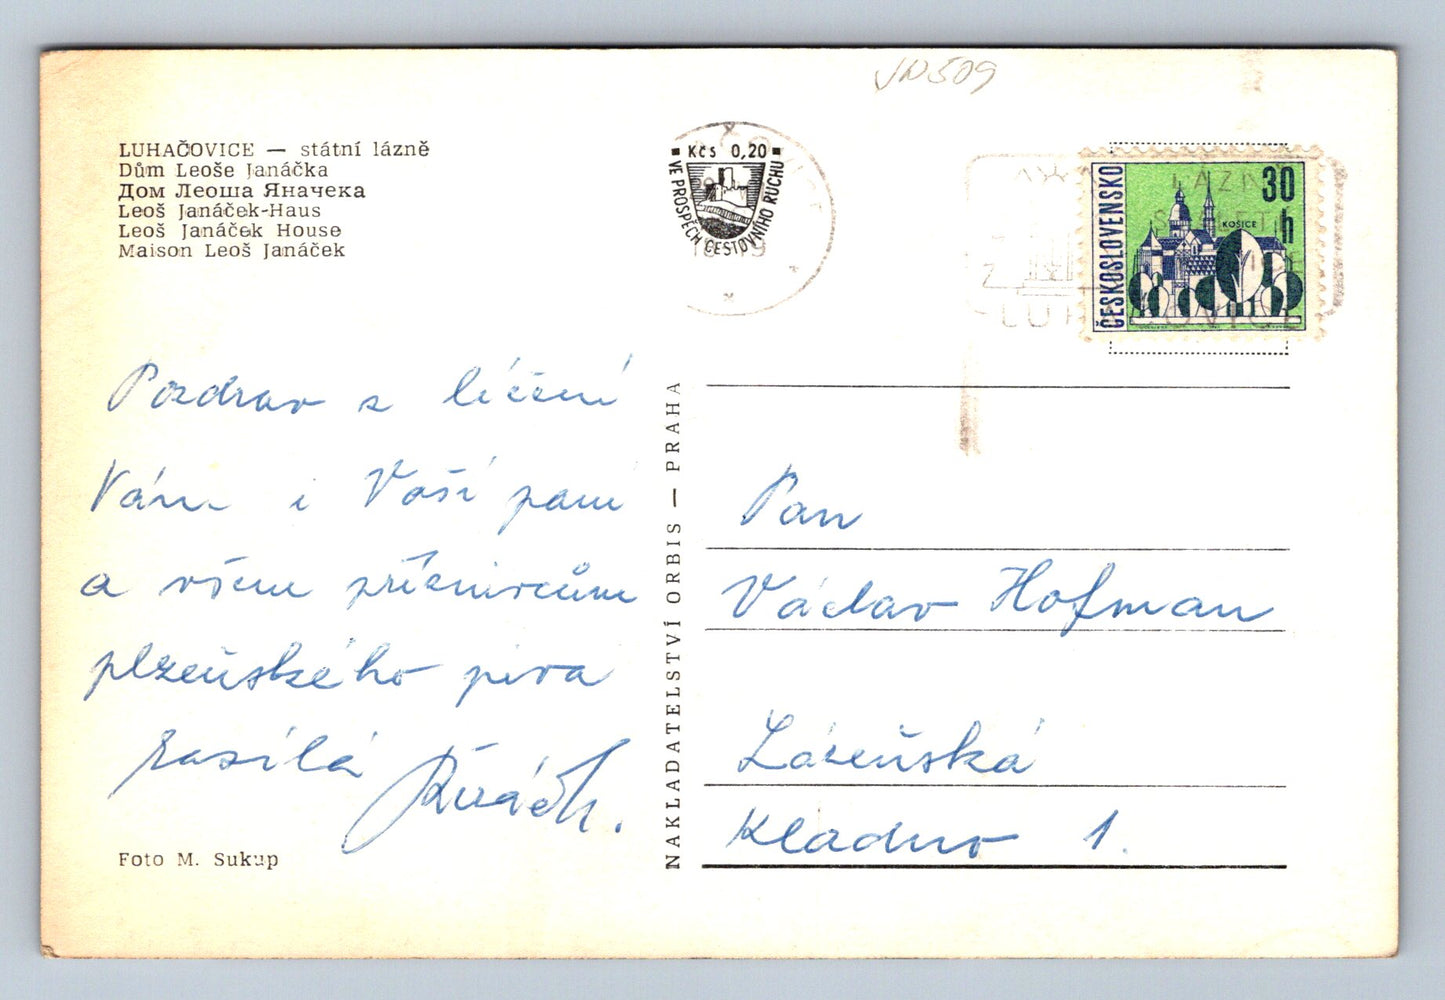 JN509
LUHAČOVICE — státní lázně
Dům Leoše Janáčka
Дом Леоша Яначека
Leoš Janáček-Haus
Leoš Janáček House
Maison Leoš Janáček
Kčs 0,20
VE PROSPĚCH CESTOVNÍHO RUCHU
ČESKOSLOVENSKO
30 h
KOŠICE
Pozdrav z léčení
Vám i Vaší paní
a všem příznivcům
plzeňského piva
zasílá
Foto M. Sukup
NAKLADATELSTVÍ ORBIS — PRAHA
Pan
Václav Hofman
Lázeňská
Kladno 1.